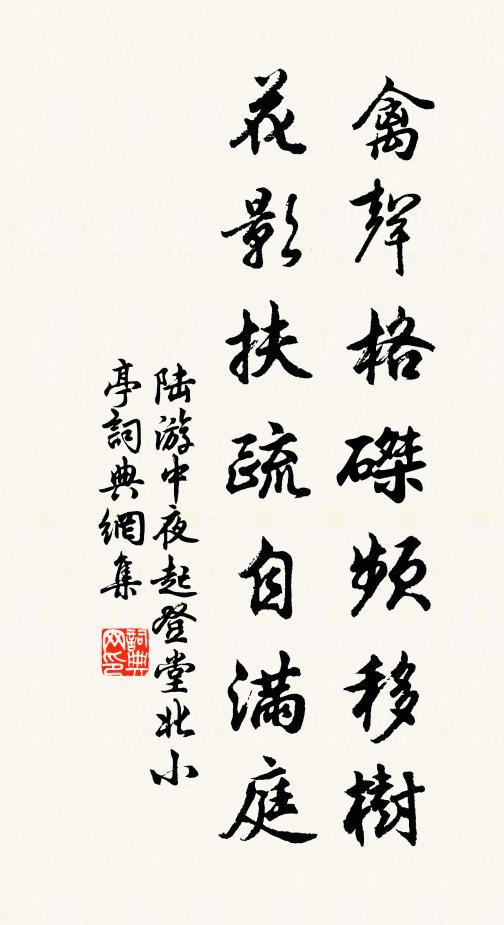 禽聲格磔頻移樹
花影扶疏自滿庭
陆游中夜起登堂北小
亭詞典網集
詞典
网印